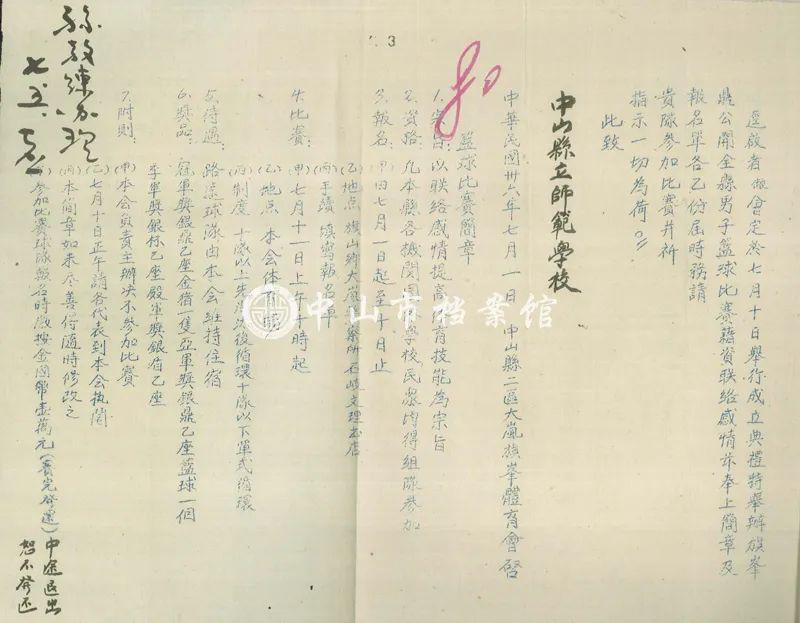 3
逕啟者敝會定於七月十日舉行成立典禮特舉辦旗峯
盃公開全縣男子籃球比賽藉資聯絡感情茲奉上簡章及
報名單各乙份屆時務請
貴隊參加比賽并祈
指示一切為荷
此致
中山縣立師範學校
中華民國卅六年七月一日 中山縣二區大嵐旗峯體育會啓
籃球比賽簡章
1. 宗旨：以聯絡感情提高體育技能為宗旨
2. 資格：凡本縣各機關團體學校民眾均得組隊參加
3. 報名：(甲)由七月一日起至十日止
(乙)地点 旗山鄉大嵐 所 石岐文理書店
(丙)手續 填寫報名單
4. 比賽：(甲)七月十一日上午十時起
(乙)地点 本會体育
(丙)制度 十隊以上先 次後循環十隊以下單式循環
5. 待遇：路遠球隊由本會維持住宿
6. 獎品：冠軍獎銀鼎乙座金 一隻亞軍獎銀鼎乙座籃球一個
季軍獎銀杯乙座殿軍獎銀盾乙座
7. 附則：(甲)本會負責主辦决不參加比賽
(乙)七月十日正午請各代表到本會抽籤
(丙)本簡章如未尽善得隨時修改之
參加比賽球隊報名時繳按金國幣壹萬元(賽完發還)中途退出
恕不發还
孫教練办理
七、五、
中山市档案馆